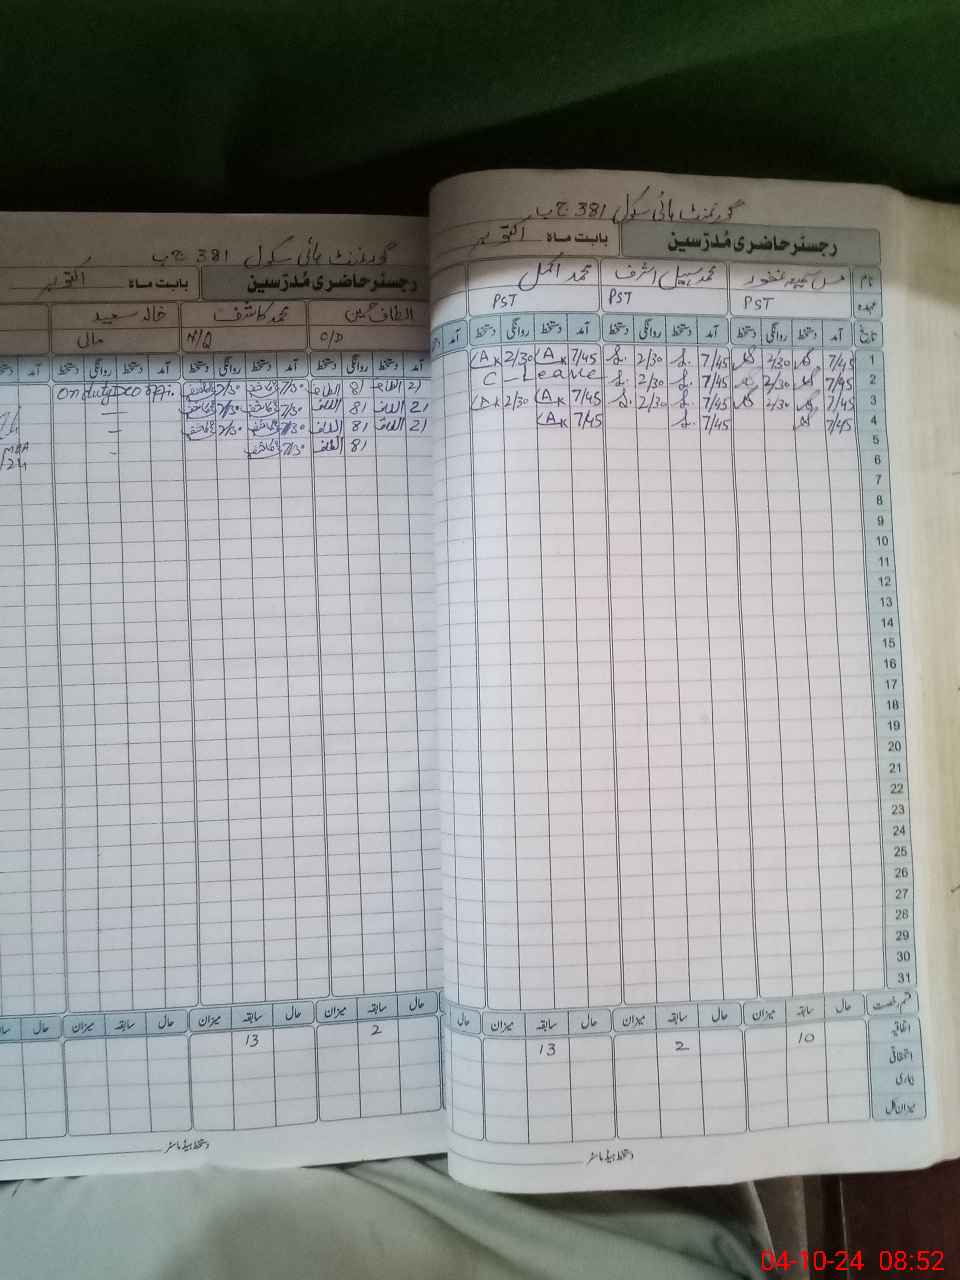 گورنمنٹ ہائی سکول 381 ج ب
رجسٹر حاضری مُدرّسین
بابت ماہ اکتوبر
نام
محمد سہیل اشرف
محمد اکمل
عہدہ
PST
PST
PST
تاریخ آمد دستخط روانگی دستخط آمد دستخط روانگی دستخط آمد دستخط روانگی دستخط آمد
1 7/45 2/30 7/45 2/30 7/45 2/30
2 7/45 2/30 7/45 2/30 C-Leave
3 7/45 2/30 7/45 2/30 7/45 2/30
4 7/45 7/45 7/45
5
6
7
8
9
10
11
12
13
14
15
16
17
18
19
20
21
22
23
24
25
26
27
28
29
30
31
قسم رخصت حال سابقہ میزان حال سابقہ میزان حال سابقہ میزان حال
اتفاقیہ 10 2 13
استحقاقی
بیماری
میزان کل
دستخط ہیڈ ماسٹر
گورنمنٹ ہائی سکول 381 ج ب
رجسٹر حاضری مُدرّسین
بابت ماہ اکتوبر
الطاف حسین
محمد کاشف
خالد سعید
C/D
N/Q
مالی
آمد دستخط روانگی دستخط آمد دستخط روانگی دستخط آمد دستخط روانگی دستخط آمد
21 الطاف 81 الطاف 7/30 کاشف 2/30 کاشف On duty DEO
21 الطاف 81 الطاف 7/30 کاشف 2/30 کاشف —
21 الطاف 81 الطاف 7/30 کاشف 2/30 کاشف —
81 الطاف 7/30 کاشف -
حال سابقہ میزان حال سابقہ میزان حال سابقہ میزان حال
2 13
دستخط ہیڈ ماسٹر
04-10-24 08:52